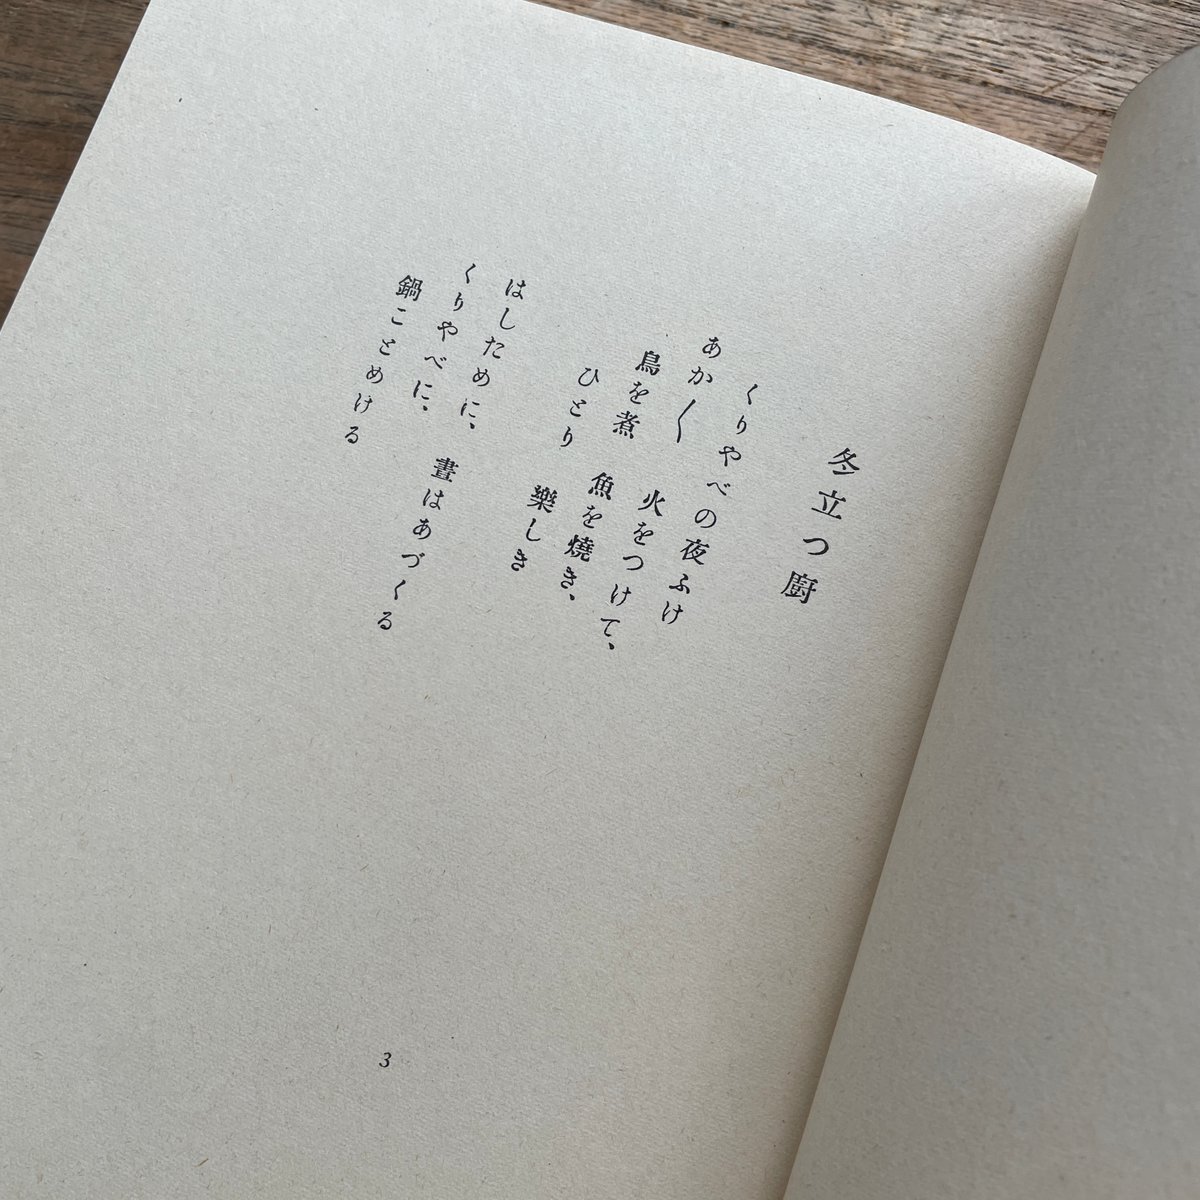 冬立つ厨
くりやべの夜ふけ
あか〱　火をつけて、
鳥を煮　魚を燒き、
ひとり　樂しき
はしために、晝はあづくる
くりやべに、
鍋ことめける
3